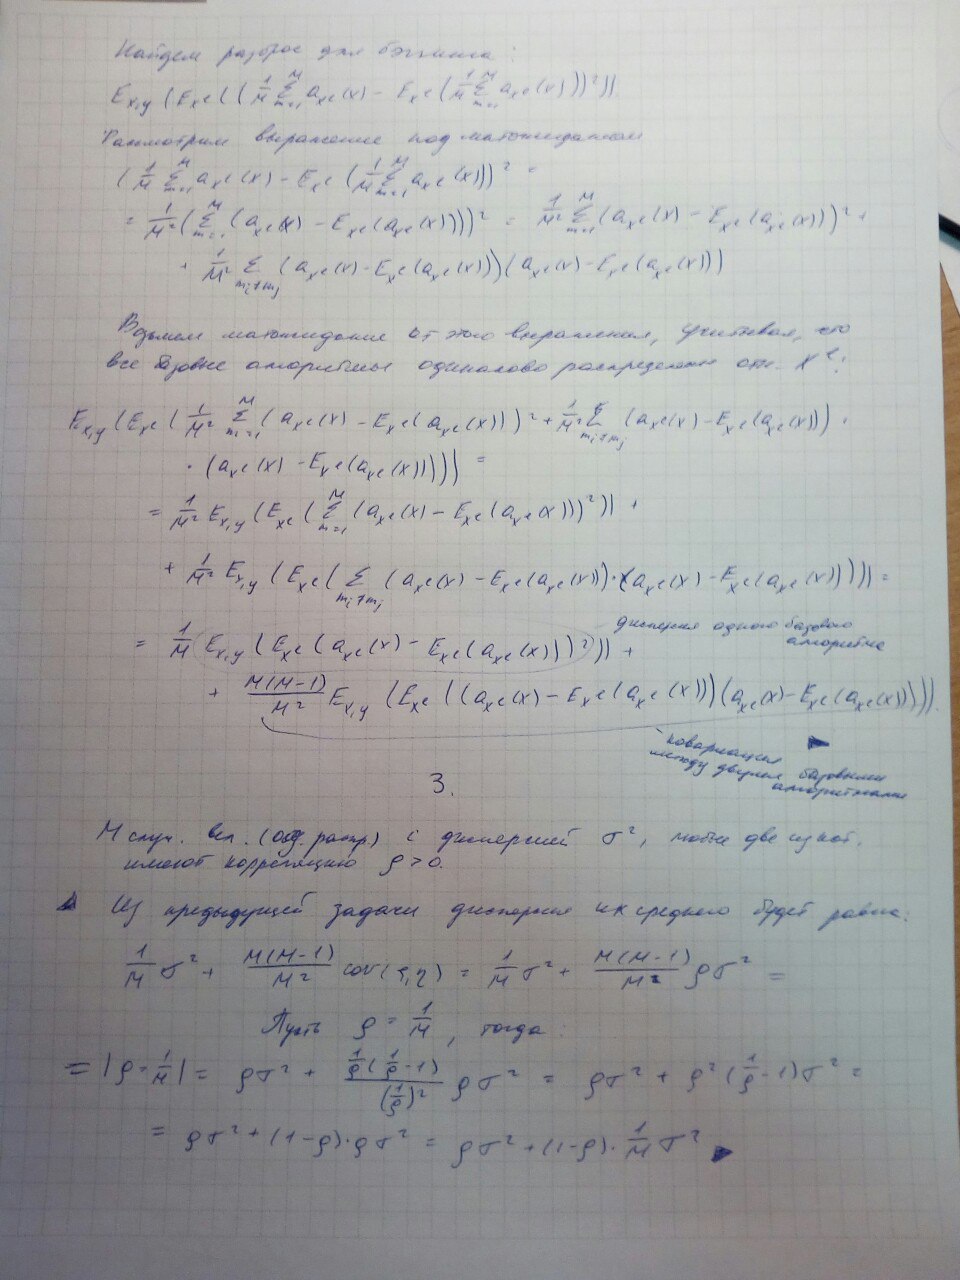 Найдем разброс для бэггинга:
E_{x,y}(E_{X^ℓ}((1/M Σ_{m=1}^{M} a_{X^ℓ}(x) - E_{X^ℓ}(1/M Σ_{m=1}^{M} a_{X^ℓ}(x)))²)).
Рассмотрим выражение под матожиданием
(1/M Σ_{m=1}^{M} a_{X^ℓ}(x) - E_{X^ℓ}(1/M Σ_{m=1}^{M} a_{X^ℓ}(x)))² =
= 1/M² (Σ_{m=1}^{M} (a_{X^ℓ}(x) - E_{X^ℓ}(a_{X^ℓ}(x))))² = 1/M² Σ_{m=1}^{M} (a_{X^ℓ}(x) - E_{X^ℓ}(a_{X^ℓ}(x)))² +
+ 1/M² Σ_{m_i≠m_j} (a_{X^ℓ}(x) - E_{X^ℓ}(a_{X^ℓ}(x)))(a_{X^ℓ}(x) - E_{X^ℓ}(a_{X^ℓ}(x)))
Возьмем матожидание от этого выражения, учитывая, что
все базовые алгоритмы одинаково распределены отн. X^ℓ:
E_{x,y}(E_{X^ℓ}(1/M² Σ_{m=1}^{M} (a_{X^ℓ}(x) - E_{X^ℓ}(a_{X^ℓ}(x)))² + 1/M² Σ_{m_i≠m_j} (a_{X^ℓ}(x) - E_{X^ℓ}(a_{X^ℓ}(x))) ·
· (a_{X^ℓ}(x) - E_{X^ℓ}(a_{X^ℓ}(x))))) =
= 1/M² E_{x,y}(E_{X^ℓ}(Σ_{m=1}^{M} (a_{X^ℓ}(x) - E_{X^ℓ}(a_{X^ℓ}(x)))²)) +
+ 1/M² E_{x,y}(E_{X^ℓ}(Σ_{m_i≠m_j} (a_{X^ℓ}(x) - E_{X^ℓ}(a_{X^ℓ}(x)))·(a_{X^ℓ}(x) - E_{X^ℓ}(a_{X^ℓ}(x))))) =
- дисперсия одного базового
алгоритма
= 1/M E_{x,y}(E_{X^ℓ}(a_{X^ℓ}(x) - E_{X^ℓ}(a_{X^ℓ}(x)))²)) +
+ M(M-1)/M² E_{x,y}(E_{X^ℓ}((a_{X^ℓ}(x) - E_{X^ℓ}(a_{X^ℓ}(x)))(a_{X^ℓ}(x) - E_{X^ℓ}(a_{X^ℓ}(x))))).
- ковариация
между двумя базовыми
алгоритмами
3.
M случ. вел. (од. распр) с дисперсией σ², любые две из кот.
имеют корреляцию ρ > 0.
Из предыдущей задачи дисперсия их среднего будет равна:
1/M σ² + M(M-1)/M² cov(ξ,η) = 1/M σ² + M(M-1)/M² ρσ² =
Пусть ρ = 1/M, тогда:
= |ρ = 1/M| = ρσ² + (1/ρ(1/ρ - 1))/(1/ρ)² ρσ² = ρσ² + ρ²(1/ρ - 1)σ² =
= ρσ² + (1-ρ)·ρσ² = ρσ² + (1-ρ)·1/M σ²